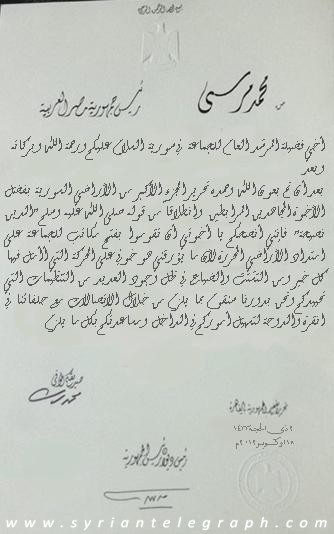 بسم الله الرحمن الرحيم
من محمد مرسى
رئيس جمهورية مصر العربية
أخي فضيلة المرشد العام للجماعة في سورية السلام عليكم ورحمة الله وبركاته
وبعد
بعد أن تم بعون الله وحمده تحرير الجزء الأكبر من الأراضي السورية بفضل
الأخوة المجاهدين المرابطين وانطلاقا من قوله صلى الله عليه وسلم "الدين
نصيحة" فإنني أنصحكم يا أخوتي أن تقوموا بفتح مكاتب للجماعة على
امتداد الأراضي المحررة لأن ما يؤرقني هو خوفي على الحركة التي أتأمل فيها
كل خير من التفتت والضياع في ظل وجود العديد من التنظيمات التي
تحييدكم ونحن بدورنا سنقوم بما يلزم من خلال الاتصالات مع حلفائنا في
أنقرة والدوحة لتسهيل أموركم في الداخل ومساعدتكم بكل ما يلزم
محمد مرسى
رئاسة الجمهورية القاهرة
٢ ذى الحجة ١٤٣٣
١٨ اكتوبر ٢٠١٢م
رئيس ديوان رئيس الجمهورية
www.syriantelegraph.com